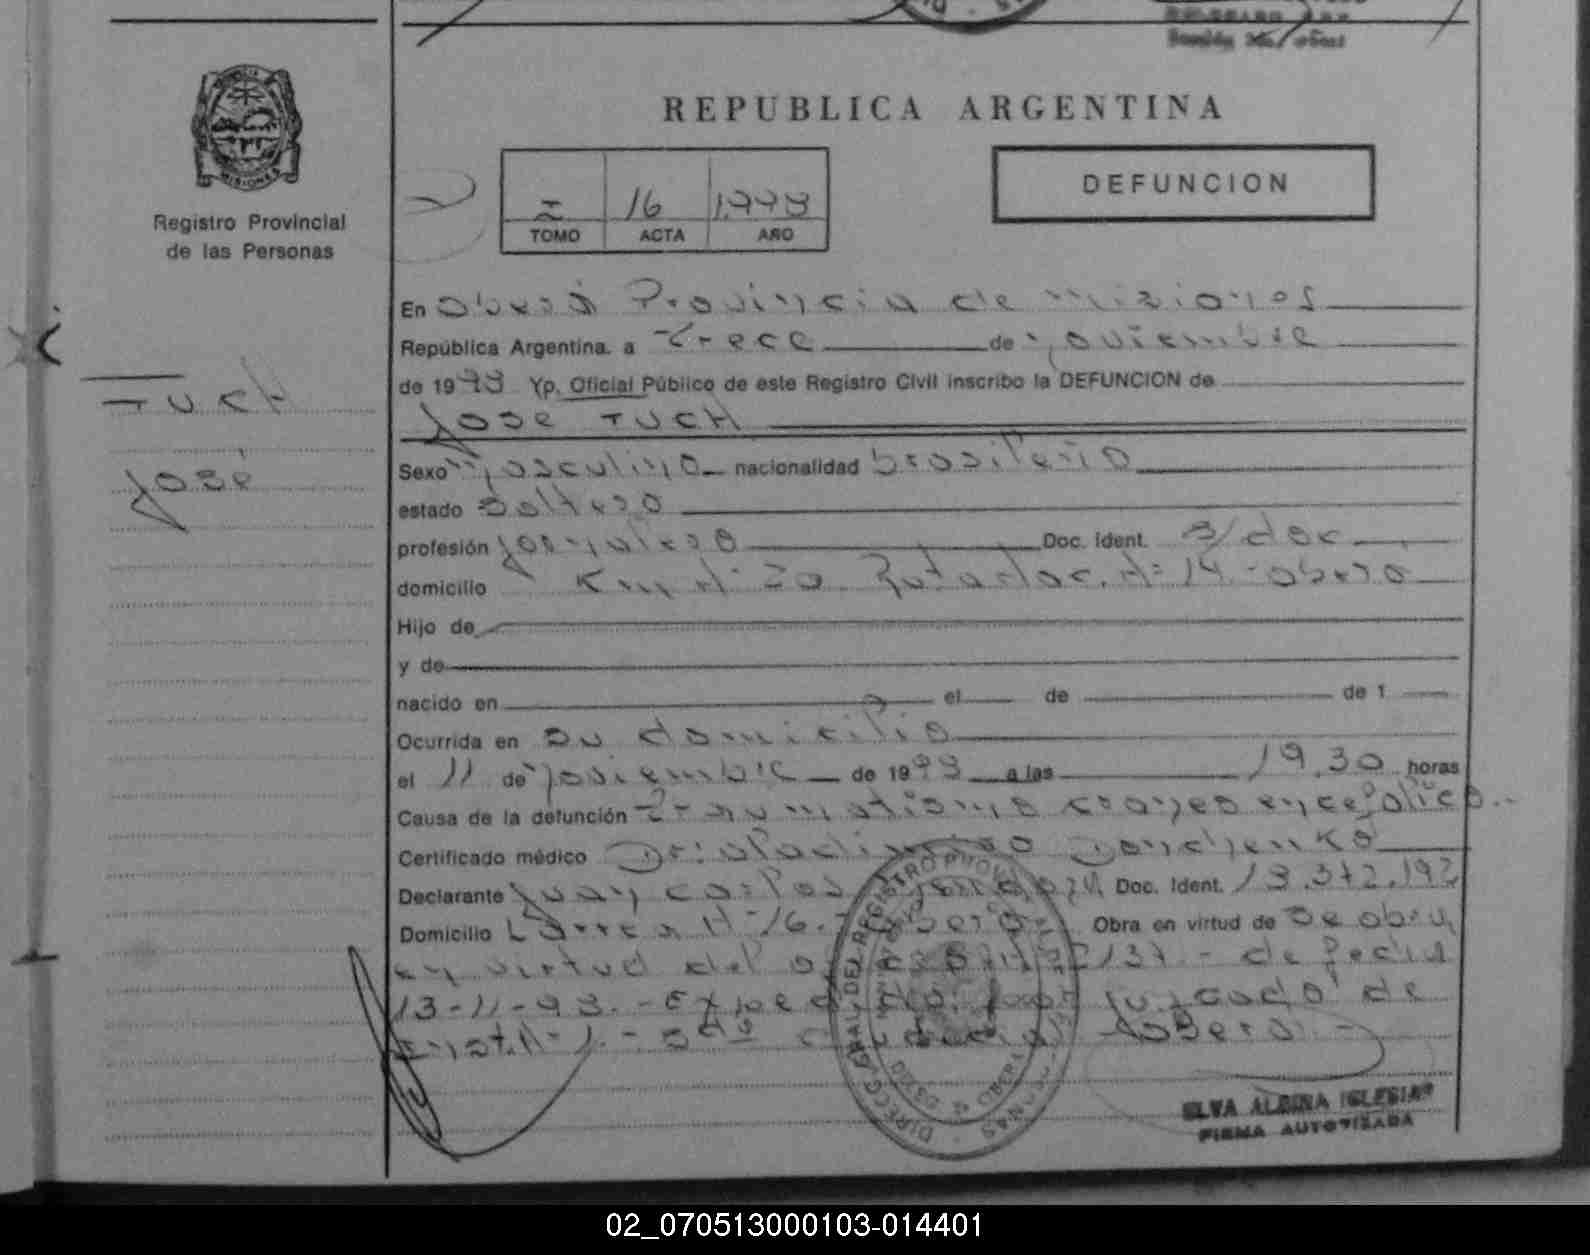 REPUBLICA ARGENTINA
MISIONES
Registro Provincial
de las Personas
I 16 1.993
TOMO ACTA AÑO
DEFUNCION
En Oberá Provincia de Misiones
República Argentina. a Trece de Noviembre
de 1993 Yp. Oficial Público de este Registro Civil inscribo la DEFUNCION de
José TUCH
TUCH
José
Sexo Masculino nacionalidad brasileño
estado Soltero
profesión Jornalero Doc. Ident. S/doc
domicilio Km Nº 20 Ruta Nac. Nº 14 - Oberá
Hijo de
y de
nacido en el de de 1
Ocurrida en su domicilio
el 11 de Noviembre de 1993 a las 19,30 horas
Causa de la defunción Traumatismo craneo encefalico
Certificado médico Dr: Vladimiro Donchenko
Declarante Juan Carlos Doc. Ident. 13.372.192
Domicilio Larrea Nº 16. Oberá Obra en virtud de Se obra
en virtud del 137.- de fecha
13-11-93.- Expedido por Juzgado de
Inst. Nº 1.- Oberá.-
DIRECC. GRAL. DEL REGISTRO PROV. PERSONAS
OBERA
ELVA ALBINA IGLESIAS
FIRMA AUTORIZADA
02_070513000103-014401